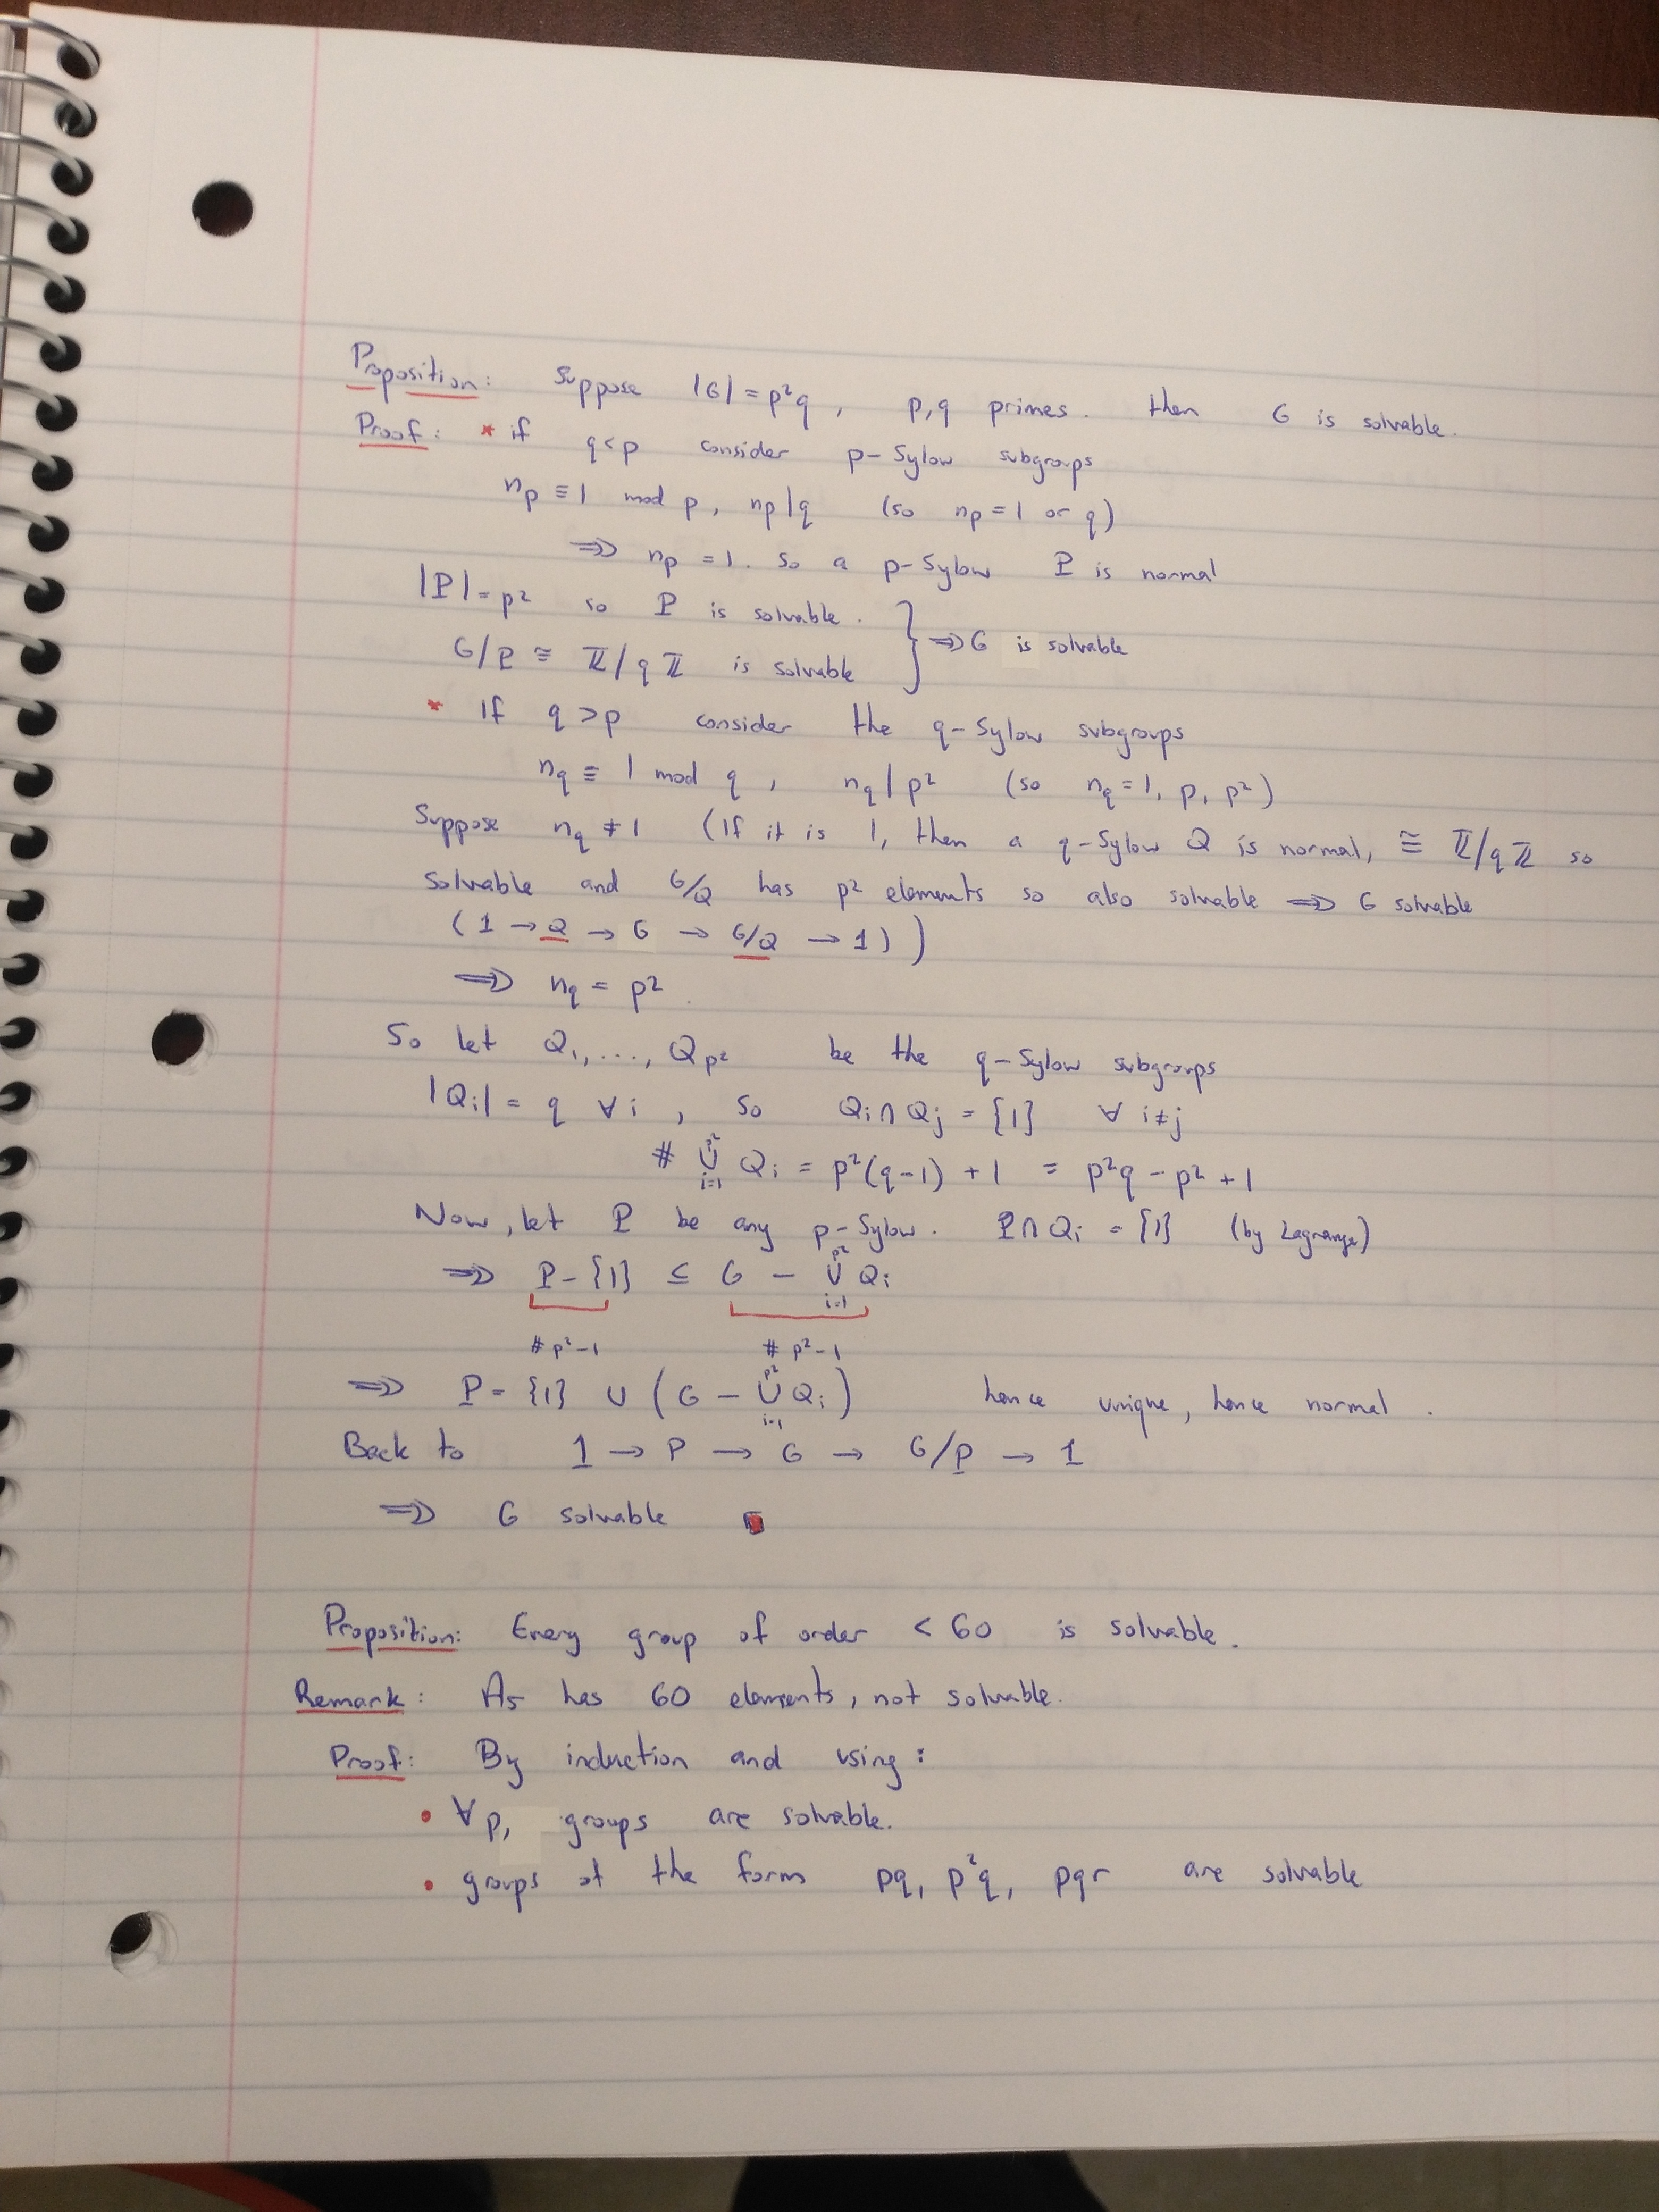 Proposition: Suppose |G| = p²q, p,q primes. then G is solvable.
Proof: * if q<p consider p-Sylow subgroups
n_p ≡ 1 mod p, n_p|q (so n_p = 1 or q)
⟹ n_p = 1. So a p-Sylow P is normal
|P| = p² so P is solvable.
G/P ≅ ℤ/qℤ is solvable } ⟹ G is solvable
* If q>p consider the q-Sylow subgroups
n_q ≡ 1 mod q, n_q | p² (so n_q = 1, p, p²)
Suppose n_q ≠ 1 (If it is 1, then a q-Sylow Q is normal, ≅ ℤ/qℤ so
solvable and G/Q has p² elements so also solvable ⟹ G solvable
(1 → Q → G → G/Q → 1))
⟹ n_q = p².
So let Q₁, ..., Q_p² be the q-Sylow subgroups
|Qᵢ| = q ∀i, so Qᵢ ∩ Qⱼ = {1} ∀ i≠j
# ⋃_{i=1}^{p²} Qᵢ = p²(q-1) + 1 = p²q - p² + 1
Now, let P be any p-Sylow. P ∩ Qᵢ = {1} (by Lagrange)
⟹ P - {1} ⊆ G - ⋃_{i=1}^{p²} Qᵢ
# p²-1 # p²-1
⟹ P = {1} ∪ (G - ⋃_{i=1}^{p²} Qᵢ) hence unique, hence normal.
Back to 1 → P → G → G/P → 1
⟹ G solvable
Proposition: Every group of order < 60 is solvable.
Remark: A₅ has 60 elements, not solvable.
Proof: By induction and using:
• ∀p, groups are solvable.
• groups of the form pq, p²q, pqr are solvable